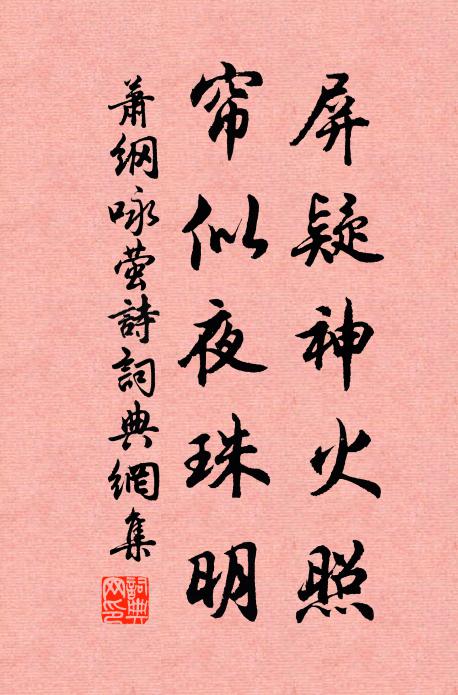 屏疑神火照
帘似夜珠明
萧纲咏萤詩詞典網集
詞典网印